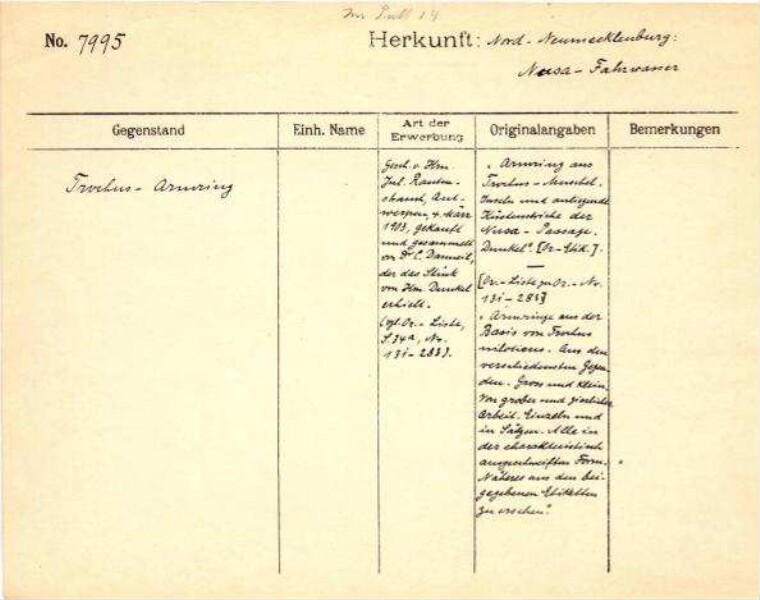 No. 7995
Herkunft: Nord-Neumecklenburg:
Nusa-Fahrwasser
Gegenstand
Einh. Name
Art der Erwerbung
Originalangaben
Bemerkungen
Trochus-Armring
Gesch. v. Hrn.
Jul. Rauten-
strauch, Ant-
werpen, 4. März
1913, gekauft
und gesammelt
von Dr. C. Danneil,
der das Stück
von Hrn. Dunkel
erhielt.
(vgl. Or.-Liste,
S. 34a, No.
131-283).
"Armring aus
Trochus-Muschel.
Inseln und anliegende
Küstenstriche der
Nusa-Passage.
Dunkel". [Or-Etik.].
[Or.-Liste zu Or.-No.
131-283]
"Armringe aus der
Basis von Trochus
niloticus. Aus den
verschiedensten Gegen-
den. Gross und klein.
Von grober und zierlicher
Arbeit. Einzeln und
in Sätzen. Alle in
der charakteristisch
ausgeschweiften Form.
Näheres aus den bei-
gegebenen Etiketten
zu ersehen."